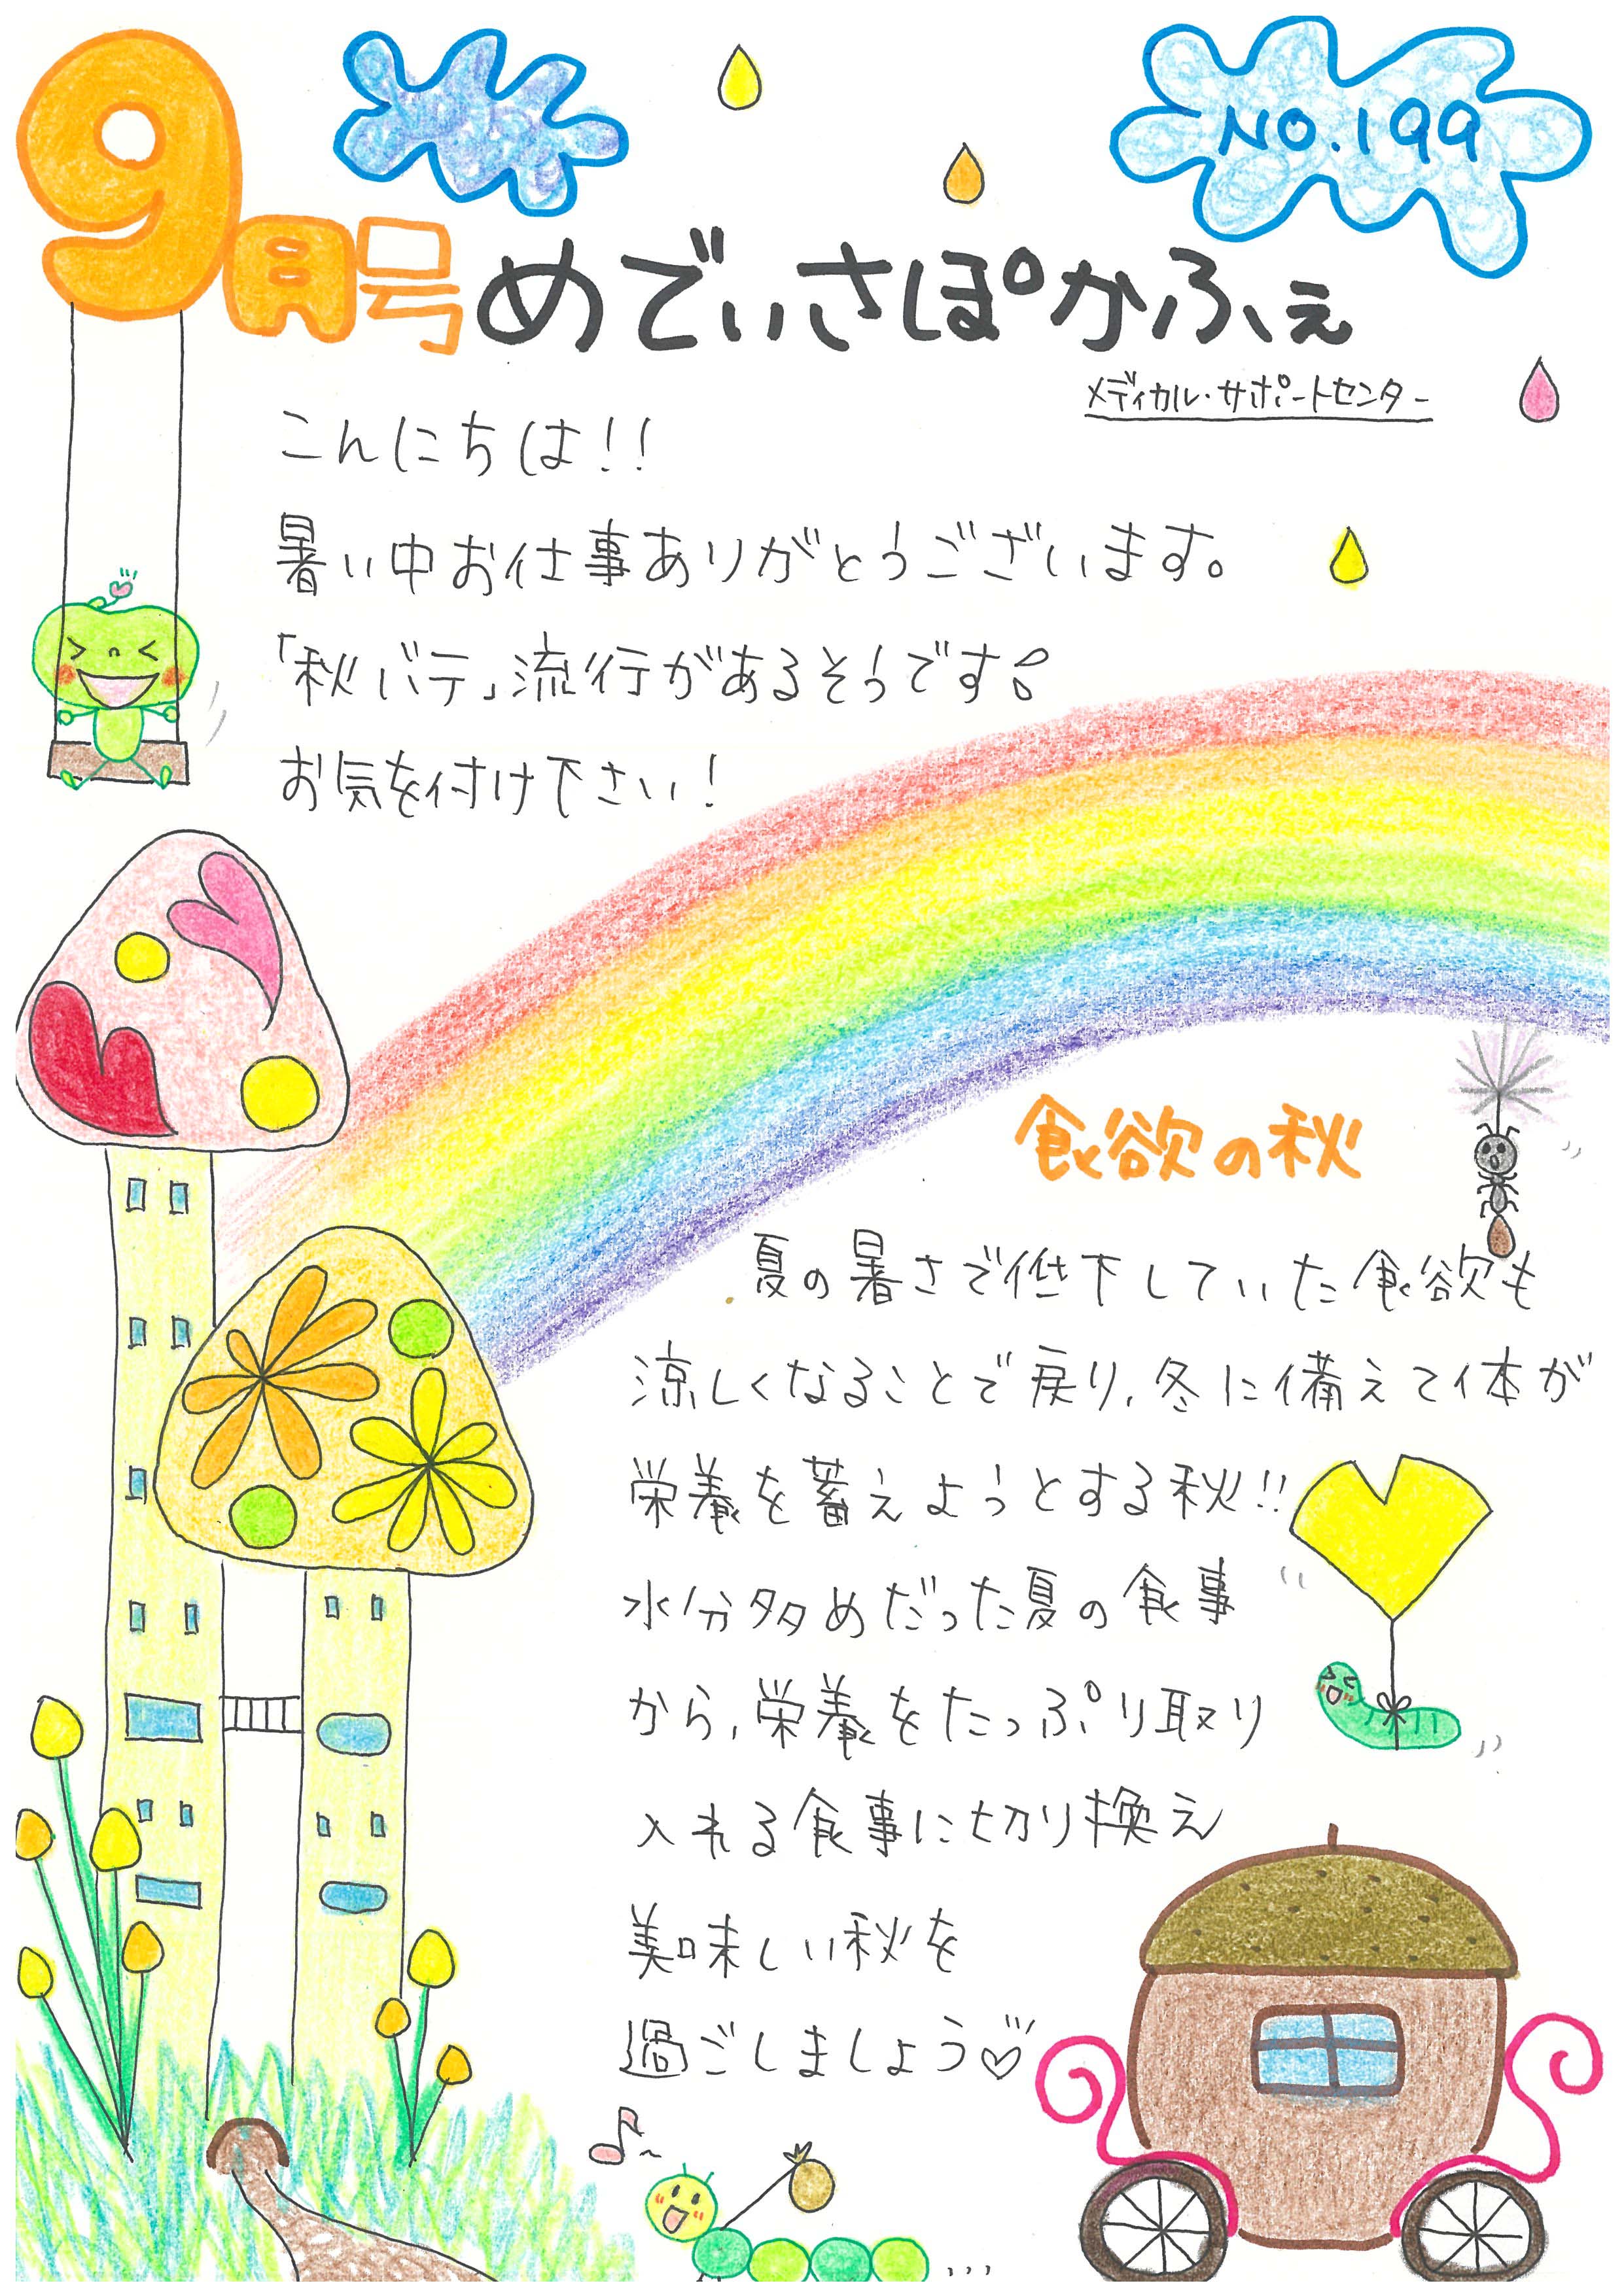 NO.199
9月号めでぃさぽかふぇ
メディカル・サポートセンター
こんにちは!!
暑い中お仕事ありがとうございます。
「秋バテ」流行があるそうです!
お気を付け下さい!
食欲の秋
夏の暑さで低下していた食欲も
涼しくなることで戻り、冬に備えて体が
栄養を蓄えようとする秋!!
水分多めだった夏の食事
から、栄養をたっぷり取り
入れる食事に切り換え
美味しい秋を
過ごしましょう♡